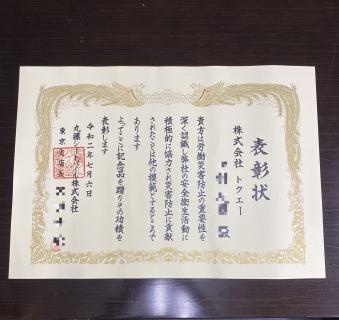 表彰状
株式会社 トクエー
殿
貴方は労働災害防止の重要性を
深く認識し弊社の安全衛生活動に
積極的に協力され災害防止に貢献
されたことは他の模範とするところで
あります
よってここに記念品を贈りその功績を
表彰します
令和二年七月六日
丸藤シートパイル株式会社
東京支店長